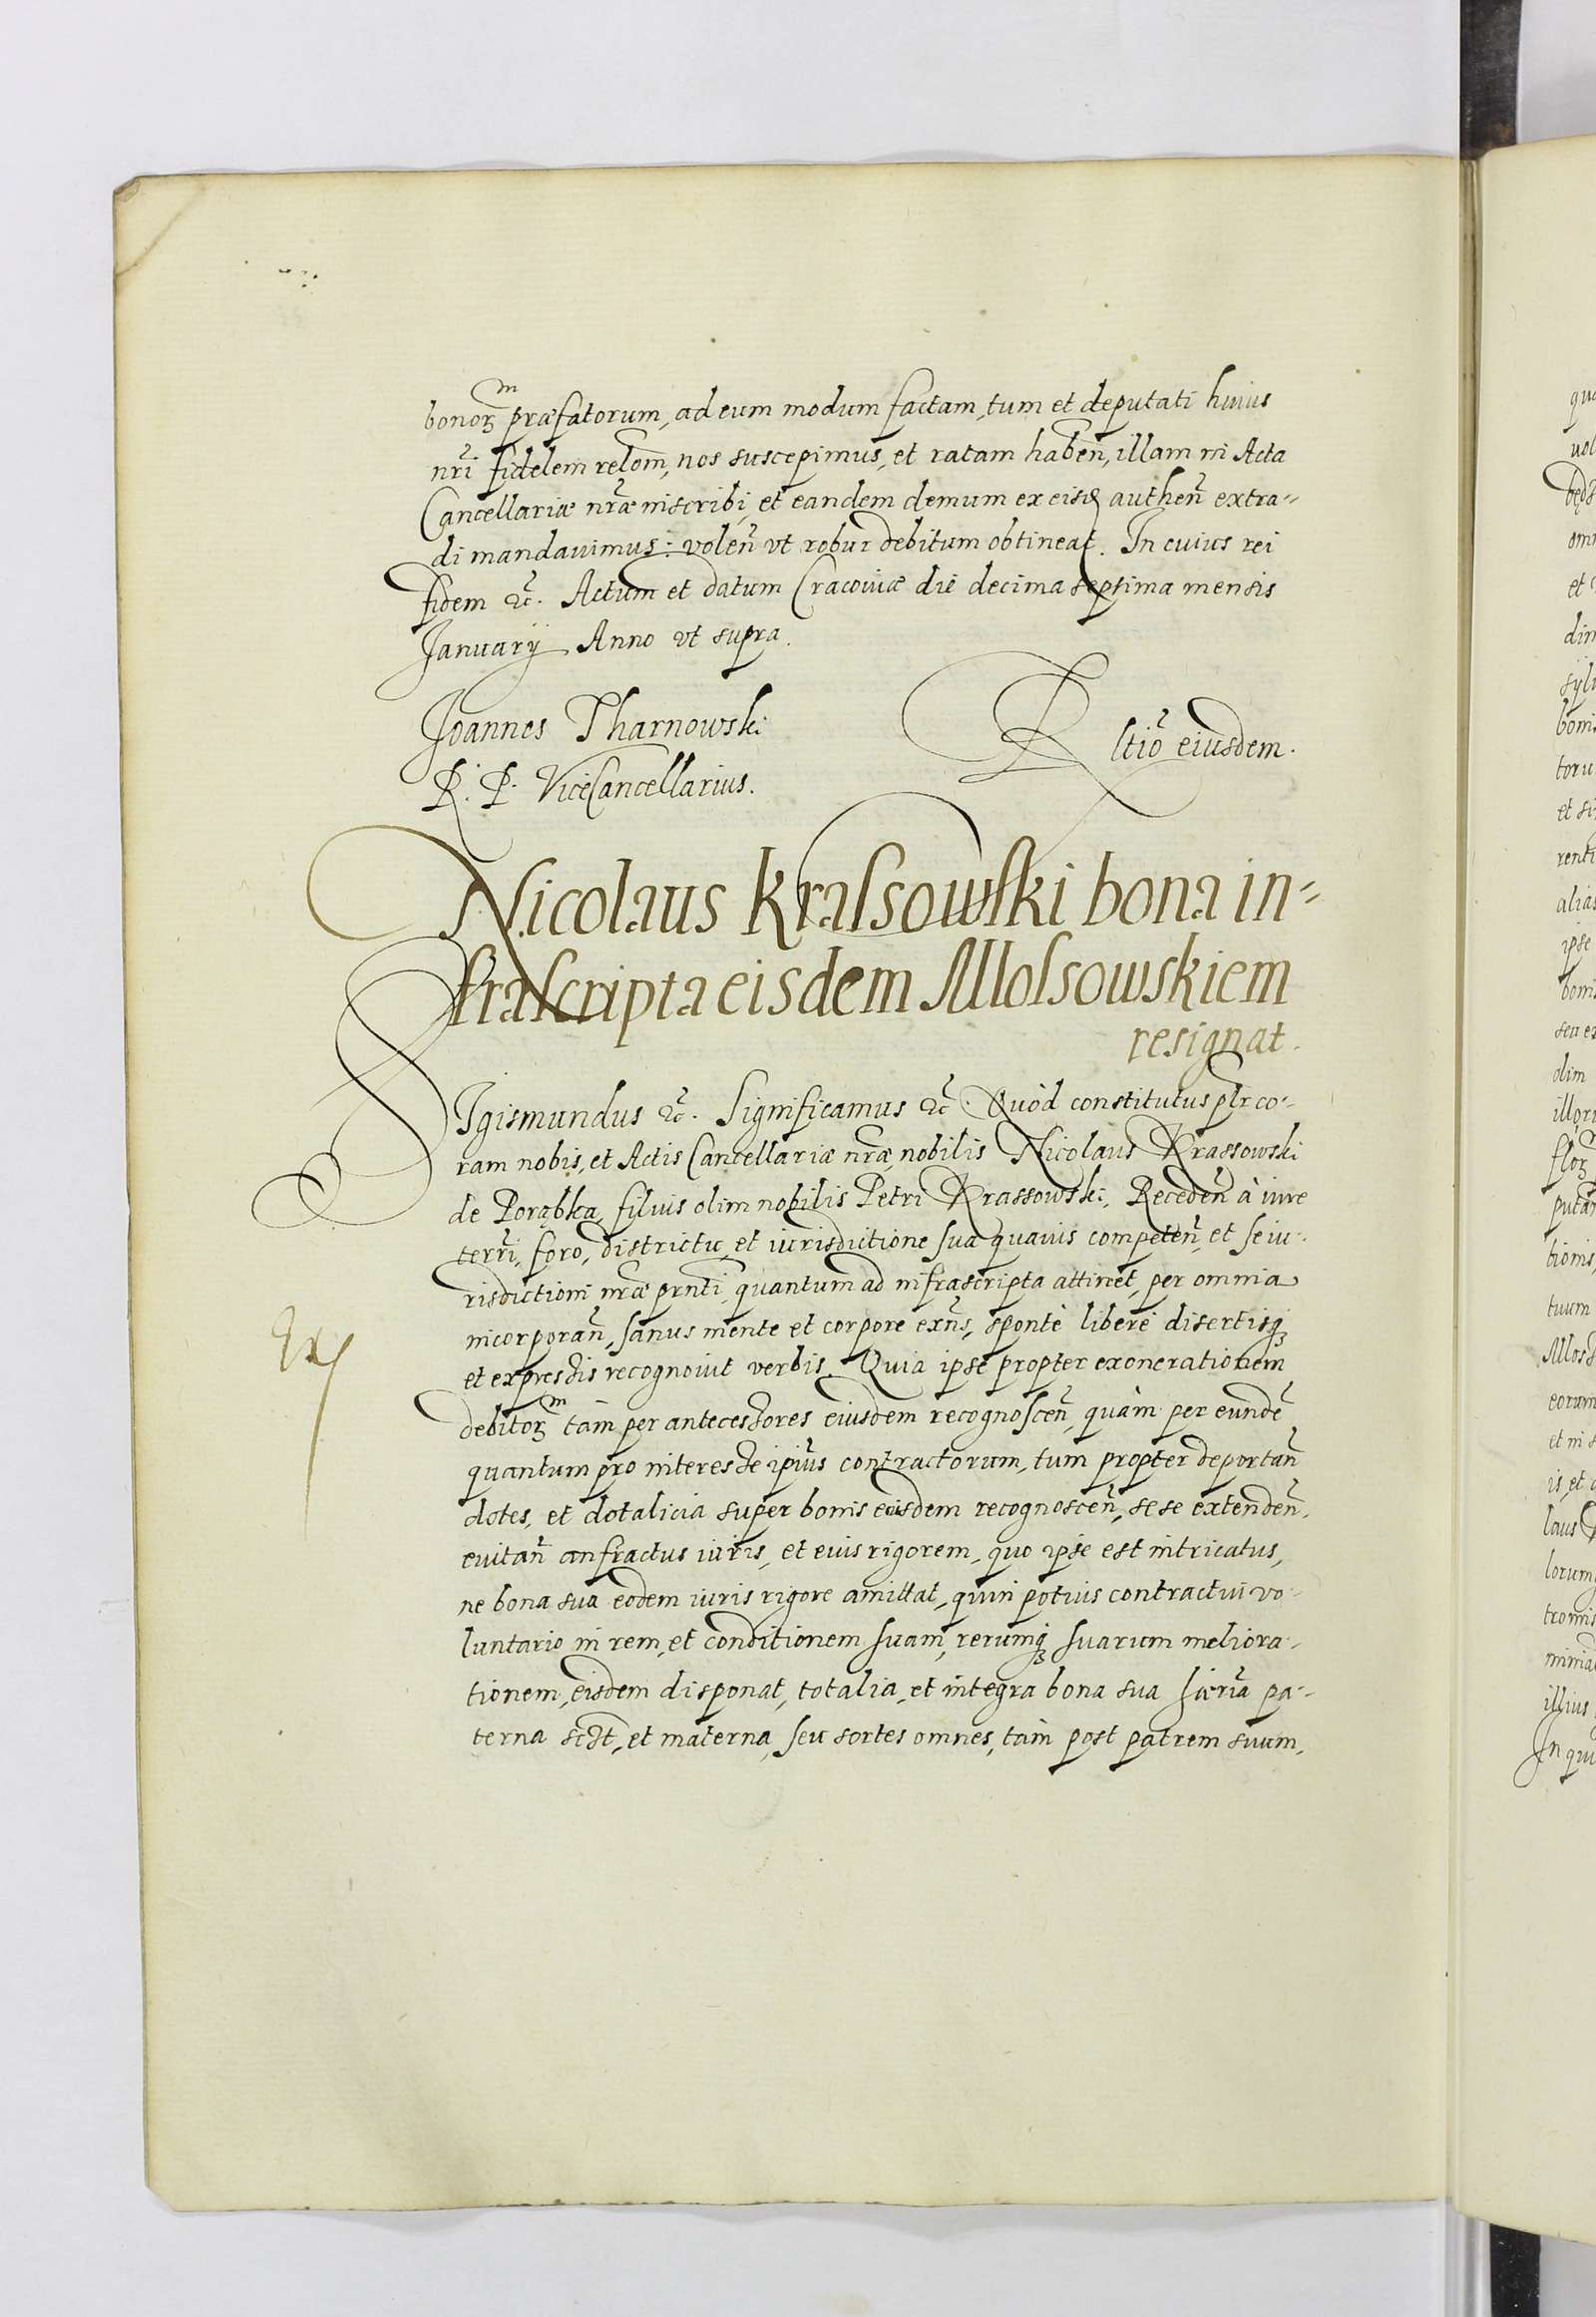 bonorꝫ m præfatorum, ad eum modum factam, tum et deputati huius
nr̃i fidelem relõm, nos suscepimus, et ratam habeñ, illam in Acta
Cancellariæ nr̃æ inscribi, et eandem demum ex eisd authen̄ extra-
di mandauimus: volen̄ vt robur debitum obtineat. In cuius rei
fidem ꝛc̃. Actum et datum Cracouiæ die decima septima mensis
Januarij Anno vt supra.
Joannes Tharnowski
R. P. ViceCancellarius.
R ltio᷉ eiusdem.
Nicolaus Krassowski bona in-
frascripta eisdem Mlossowskiem
resignat.
SIgismundus ꝛc̃. Significamus ꝛc̃. Quòd constitutus plr̃ co-
ram nobis, et Actis Cancellariæ nr̃æ, nobilis Nicolaus Krassowski
de Porąbka, filius olim nobilis Petri Krassowski, Recedeñ à iure
terri᷉, foro, districtu, et iurisdictione sua quauis competen̄, et se iu-
risdictioni nr̃æ prnti᷉, quantum ad infrascripta attinet, per omnia
incorporan̄, sanus mente et corpore exñs, spontè liberè disertisqꝫ
et expressis recognouit verbis. Quia ipse propter exonerationem
debitorꝫ m tàm per antecessores eiusdem recognoscen̄, quàm per eunde᷉
quantum pro interesse ipiu᷉s contractorum, tum propter deportan̄
dotes, et dotalicia super bonis eiusdem recognoscen̄, sese extenden̄,
euitan̄ anfractus iuris, et euis rigorem, quo ipse est intricatus,
ne bona sua eodem iuris rigore amittat, quin potius contractui vo-
luntario in rem, et conditionem suam, rerumqꝫ suarum meliora-
tionem, eisdem disponat, totalia, et integra bona sua hæria᷉ pa-
terna sc̃t, et materna, seu sortes omnes, tàm post patrem suum,
Ex